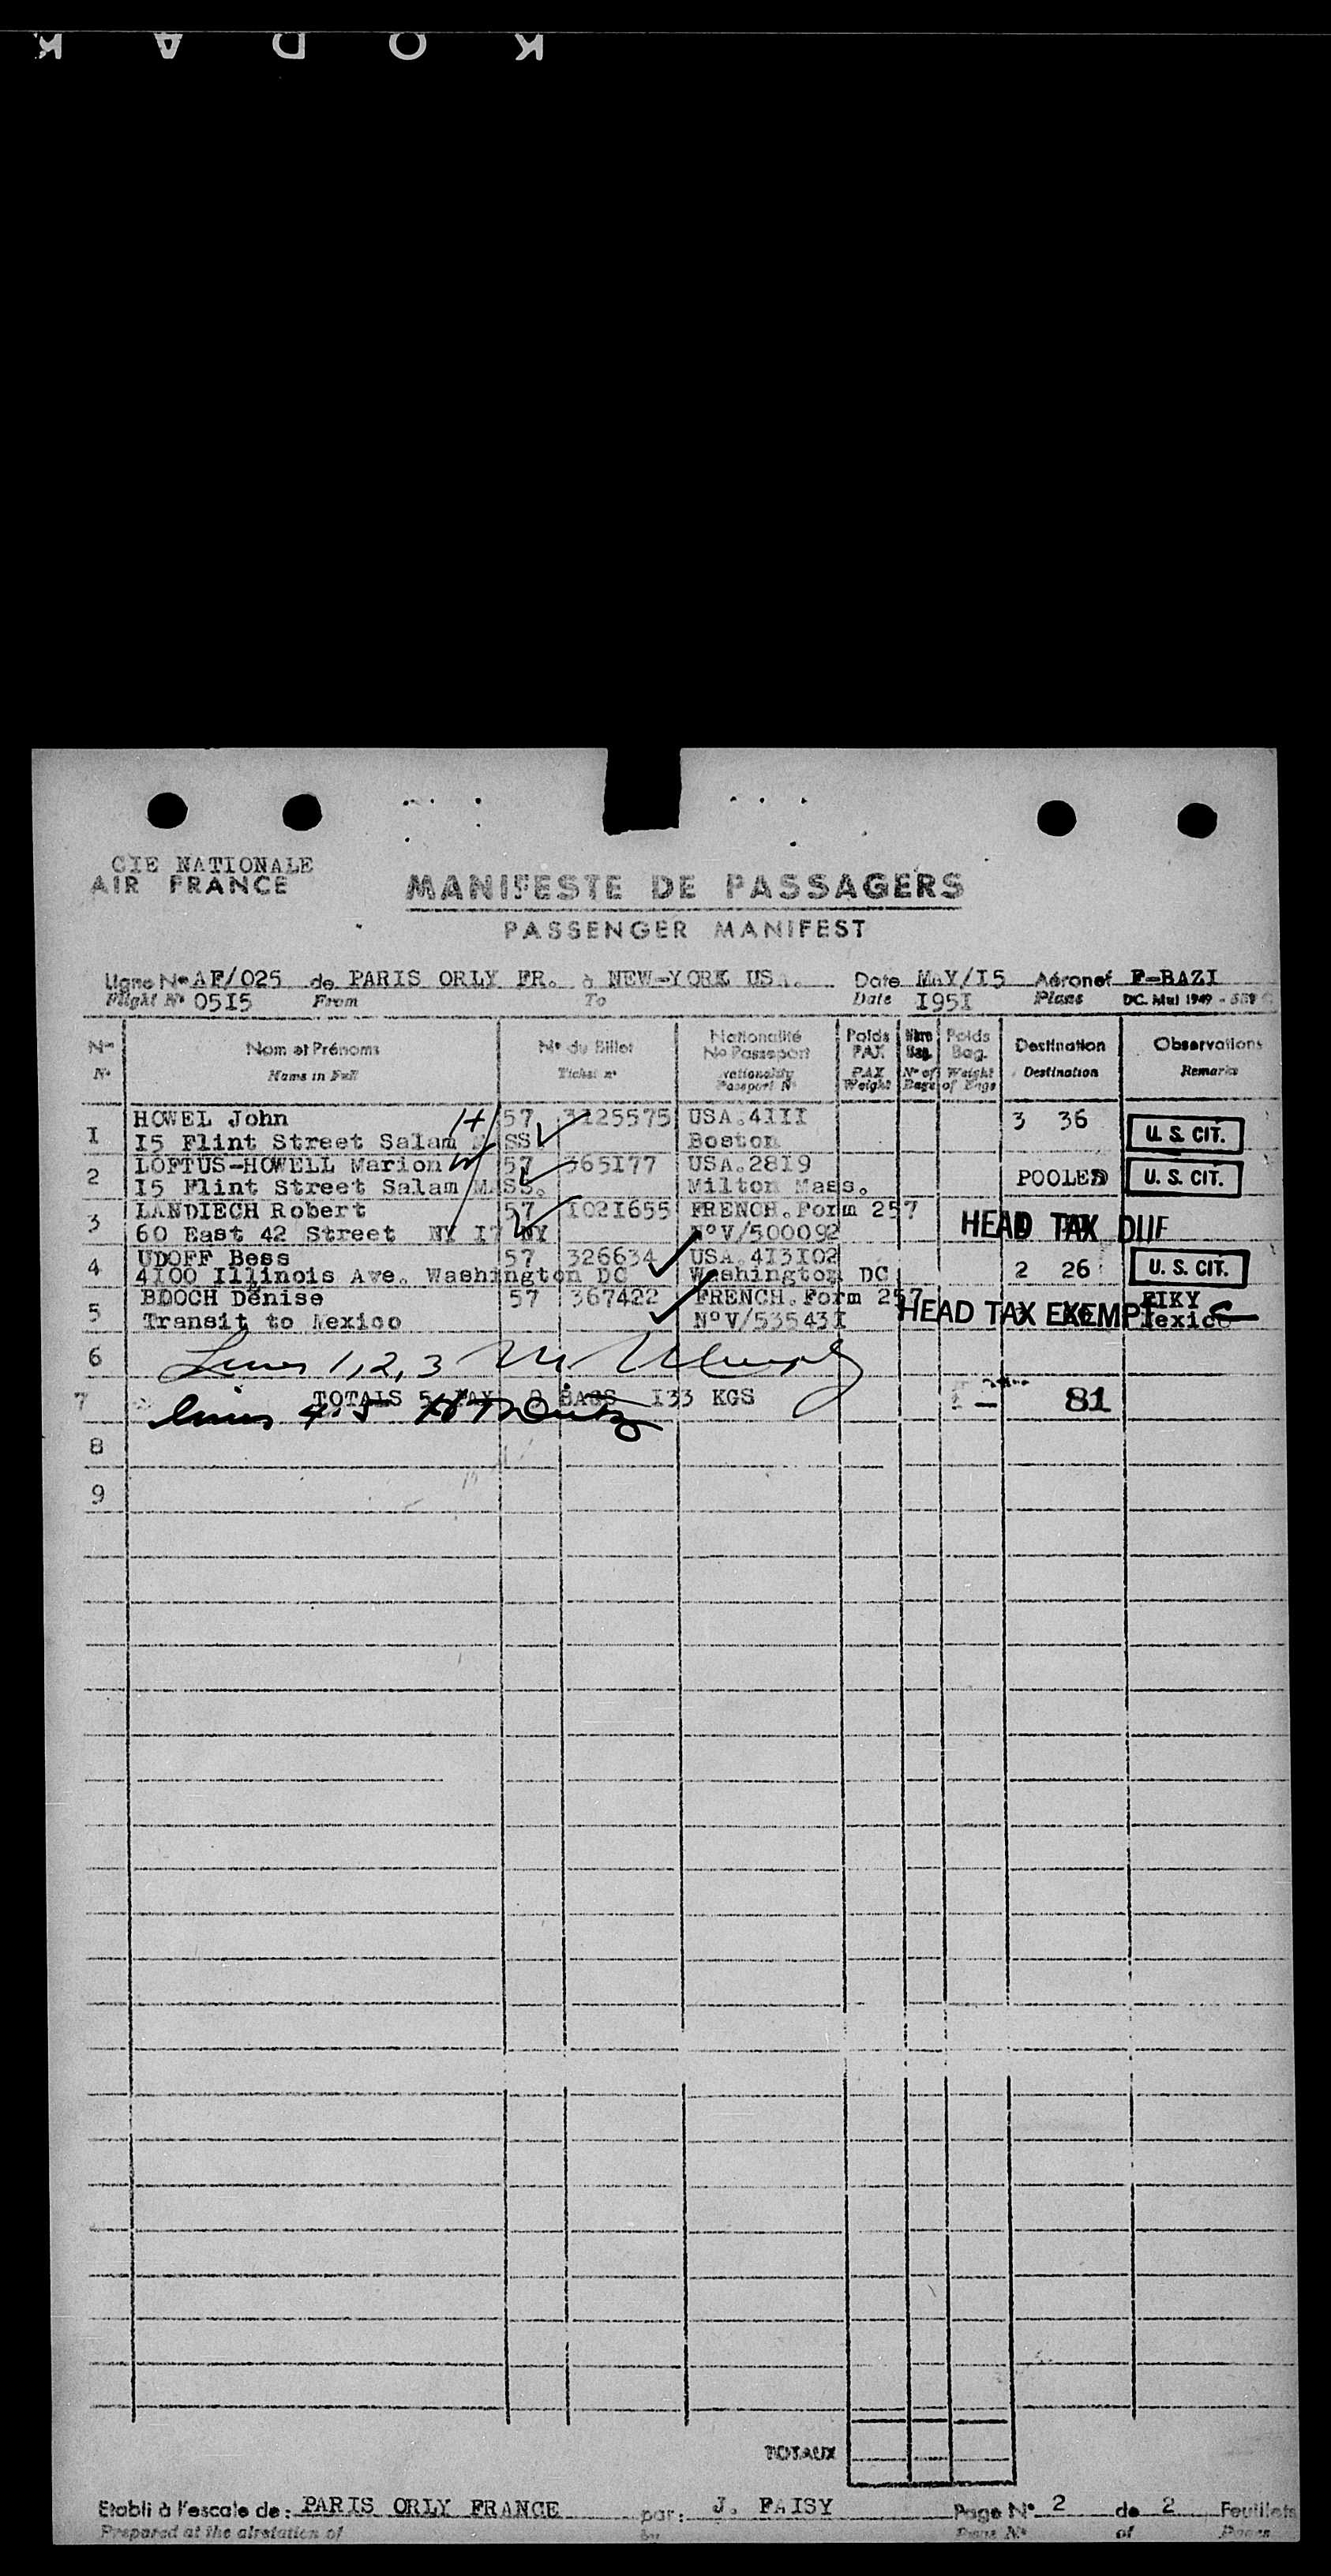 KODAK
CIE NATIONALE
AIR FRANCE
MANIFESTE DE PASSAGERS
PASSENGER MANIFEST
Ligne Nº AF/025 de PARIS ORLY FR. à NEW-YORK USA. Date MAY/I5 Aéronef F-BAZI
Flight Nº 05I5 From To Date I95I Plane DC. Mul 1949
Nº Nom et Prénoms Nº du Billet Nationalité No Passeport Poids PAX Nbre Bag. Poids Bag. Destination Observations
Nº Name in Full Ticket nº Nationality Passport Nº PAX Weight Nº of Bags Weight of Bags Destination Remarks
I HOWEL John 57 3125575 USA.4III 3 36
I5 Flint Street Salam MASS Boston U. S. CIT.
2 LOFTUS-HOWELL Marion 57 365I77 USA.28I9
I5 Flint Street Salam MASS. Milton Mass. POOLED U. S. CIT.
3 LANDIECH Robert 57 I02I655 FRENCH.Form 257
60 East 42 Street NY I7 NY NºV/500092 HEAD TAX DUE
4 UDOFF Bess 57 326634 USA.4I3I02
4I00 Illinois Ave. Washington DC Washington DC 2 26 U. S. CIT.
5 BLOCH Denise 57 367422 FRENCH.Form 257
Transit to Mexico NºV/53543I HEAD TAX EXEMPT Mexico
6 Lines 1, 2, 3
7 TOTALS 5 PAX BAGS I33 KGS 81
Lines 4.5
8
9
TOTAUX
Etabli à l'escale de: PARIS ORLY FRANCE par: J. FAISY Page Nº 2 de 2 Feuillets
Prepared at the airstation of by Page Nº of Pages